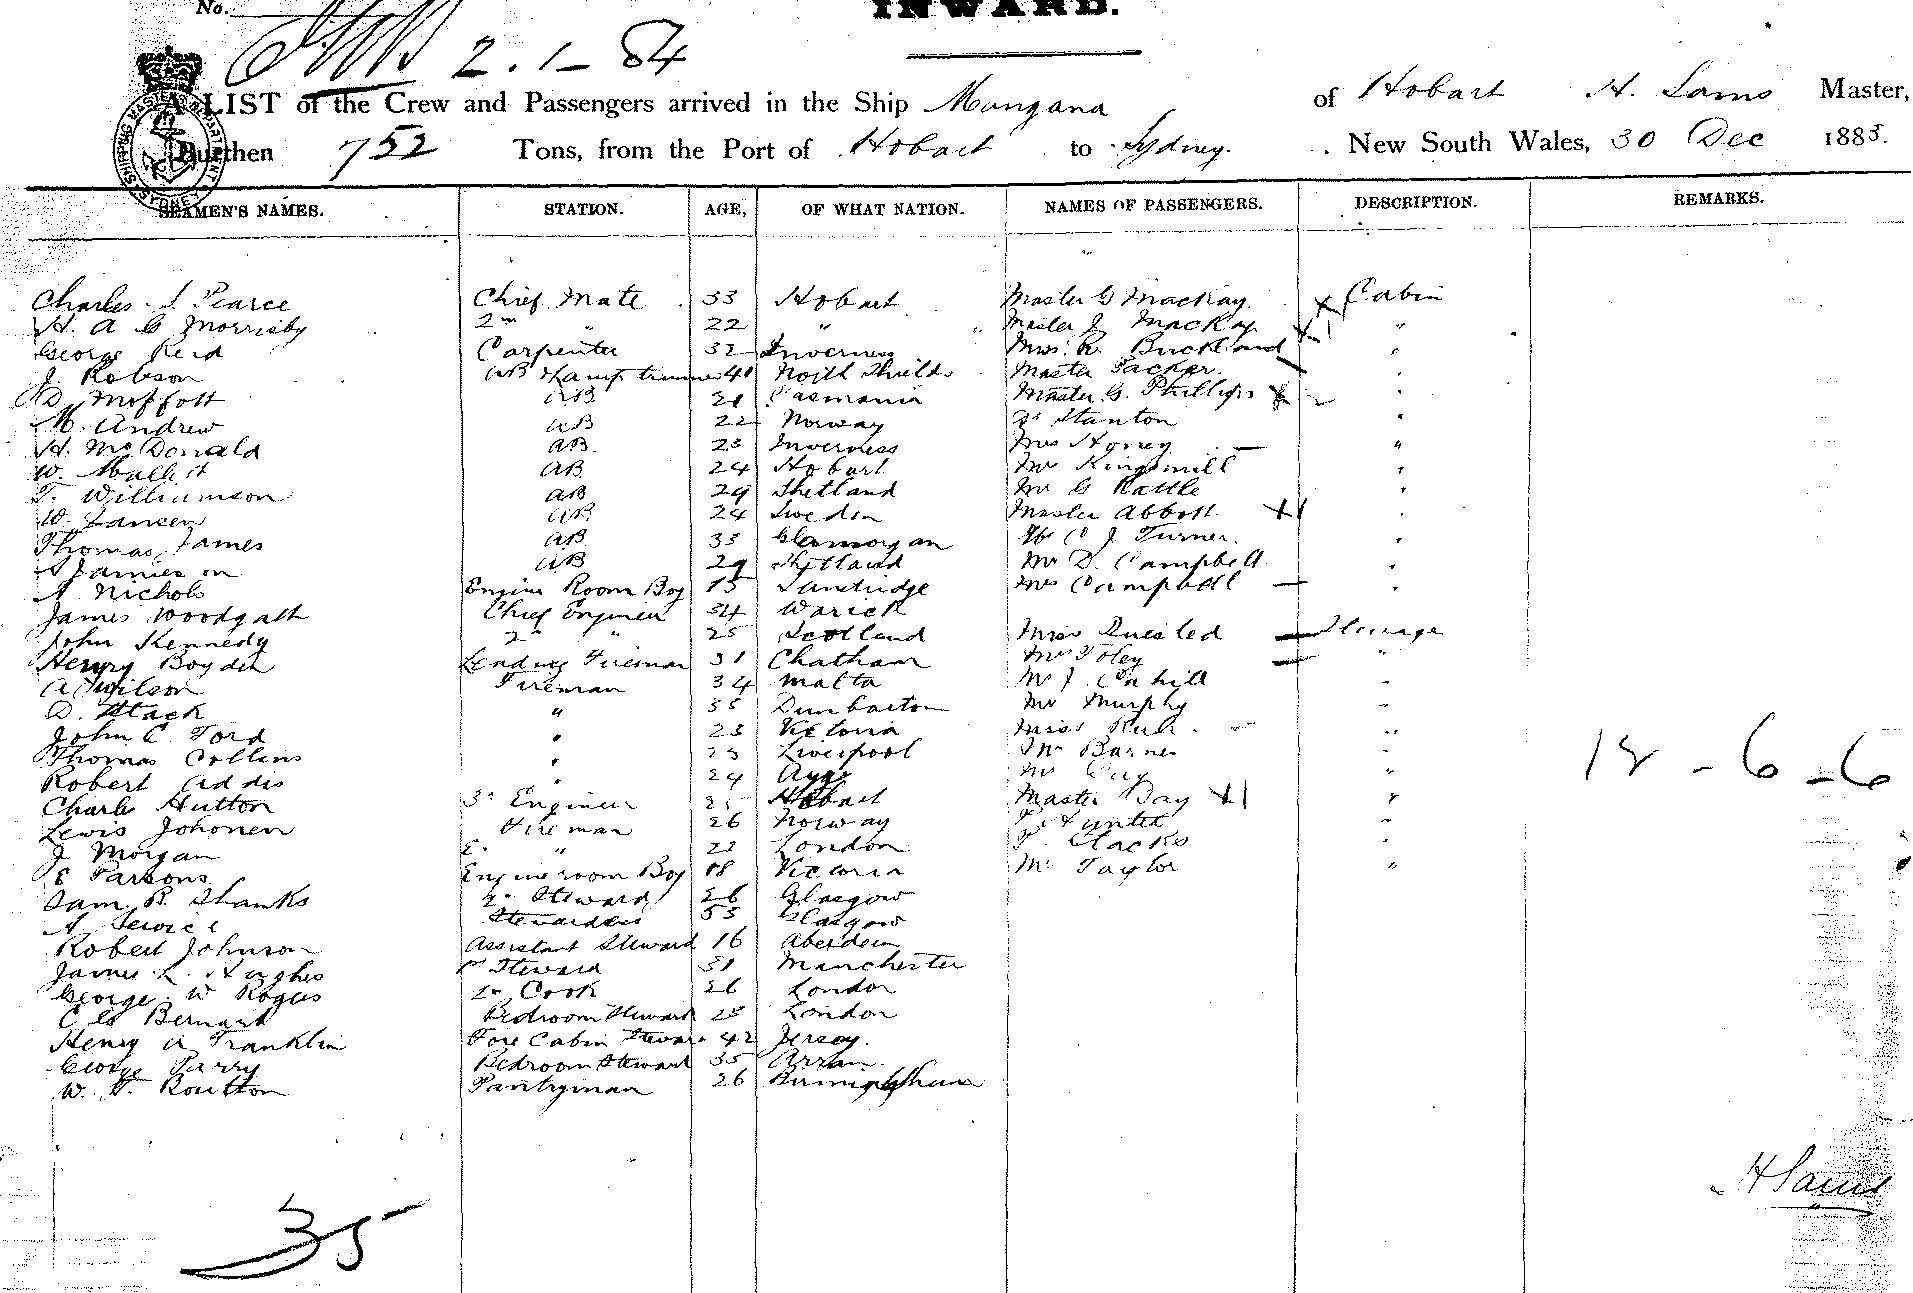 No.
INWARD.
2.1-84
A LIST of the Crew and Passengers arrived in the Ship Mangana of Hobart H. Sams Master,
Burthen 752 Tons, from the Port of Hobart to Sydney. New South Wales, 30 Dec 1883.
SEAMEN'S NAMES. STATION. AGE, OF WHAT NATION. NAMES OF PASSENGERS. DESCRIPTION. REMARKS.
Charles Pearce Chief Mate 33 Hobart Master G Mackay Cabin
H. A G Morrisby 2nd " 22 " Master J Mackay "
George Reid Carpenter 32 Inverness Miss R. Buckland "
J Robson AB & Lamp trimmer 40 North Shields Master Packer. "
D. Moffott AB 21 Tasmania Master G. Phillips "
M. Andrew AB 22 Norway Stanton "
H. McDonald AB 23 Inverness Mrs "
W. AB 24 Hobart Mr Kingsmill "
T. Williamson AB 29 Shetland Mr G Rattle "
W. Jansen AB 24 Sweden Master Abbott "
Thomas James AB 33 Glamorgan C J Turner. "
Jamieson AB 29 Shetland Mr D. Campbell "
A. Nichols Engine Room Boy 15 Sandridge Mrs Campbell "
James Woodgath Chief Engineer 34 Warick
John Kennedy 2nd " 25 Scotland Miss Quested Steerage
Henry Boyden Leading Fireman 31 Chatham Foley "
A Wilson Fireman 34 Malta Mr J. Cahill "
D. Stack " 35 Dunbarton Mr Murphy "
John C Ford " 23 Victoria Miss "
Thomas Collins " 23 Liverpool Mr Barnes "
Robert Addis " 24 Ayr Mr "
Charles Hutton 3rd Engineer 25 Hobart Master Day "
Lewis Johonen Fireman 26 Norway "
J Morgan " 22 London "
E Parsons Engineroom Boy 18 Victoria Mr Taylor "
Sam. R. Shanks 2nd Steward 26 Glasgow
A Stewardess 53 Glasgow
Robert Johnson Assistant Steward 16 Aberdeen
James L. Hughes Steward 31 Manchester
George W Rogers 2nd Cook 26 London
C G Bernard Bedroom Steward 23 London
Henry A Franklin Fore Cabin Steward 42 Jersey.
George Parry Bedroom Steward 35 Arran
W. F. Routton Pantryman 26 Birmingham
12-6-6
H Sams
35